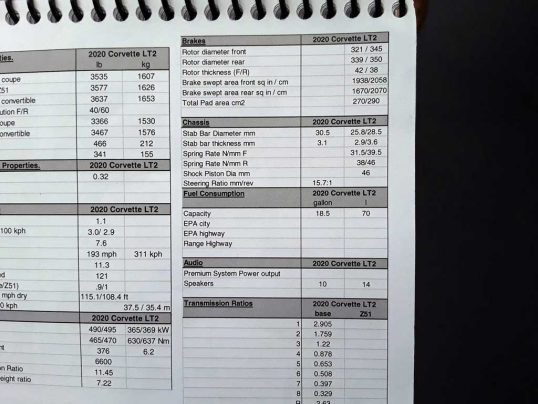 ties.
2020 Corvette LT2
lb kg
coupe 3535 1607
Z51 3577 1626
convertible 3637 1653
ution F/R 40/60
oupe 3366 1530
onvertible 3467 1576
466 212
341 155
Properties. 2020 Corvette LT2
0.32
2020 Corvette LT2
1.1
100 kph 3.0/ 2.9
7.6
193 mph 311 kph
11.3
ed 121
e/Z51) .9/1
mph dry 115.1/108.4 ft
0 kph 37.5 / 35.4 m
2020 Corvette LT2
490/495 365/369 kW
465/470 630/637 Nm
nt 376 6.2
6600
on Ratio 11.45
eight ratio 7.22
Brakes 2020 Corvette LT2
Rotor diameter front 321 / 345
Rotor diameter rear 339 / 350
Rotor thickness (F/R) 42 / 38
Brake swept area front sq in / cm 1938/2058
Brake swept area rear sq in / cm 1670/2070
Total Pad area cm2 270/290
Chassis 2020 Corvette LT2
Stab Bar Diameter mm 30.5 25.8/28.5
Stab bar thickness mm 3.1 2.9/3.6
Spring Rate N/mm F 31.5/39.5
Spring Rate N/mm R 38/46
Shock Piston Dia mm 46
Steering Ratio mm/rev 15.7:1
Fuel Consumption 2020 Corvette LT2
gallon l
Capacity 18.5 70
EPA city
EPA highway
Range Highway
Audio 2020 Corvette LT2
Premium System Power output
Speakers 10 14
Transmission Ratios 2020 Corvette LT2
base Z51
1 2.905
2 1.759
3 1.22
4 0.878
5 0.653
6 0.508
7 0.397
8 0.329
R 2.63